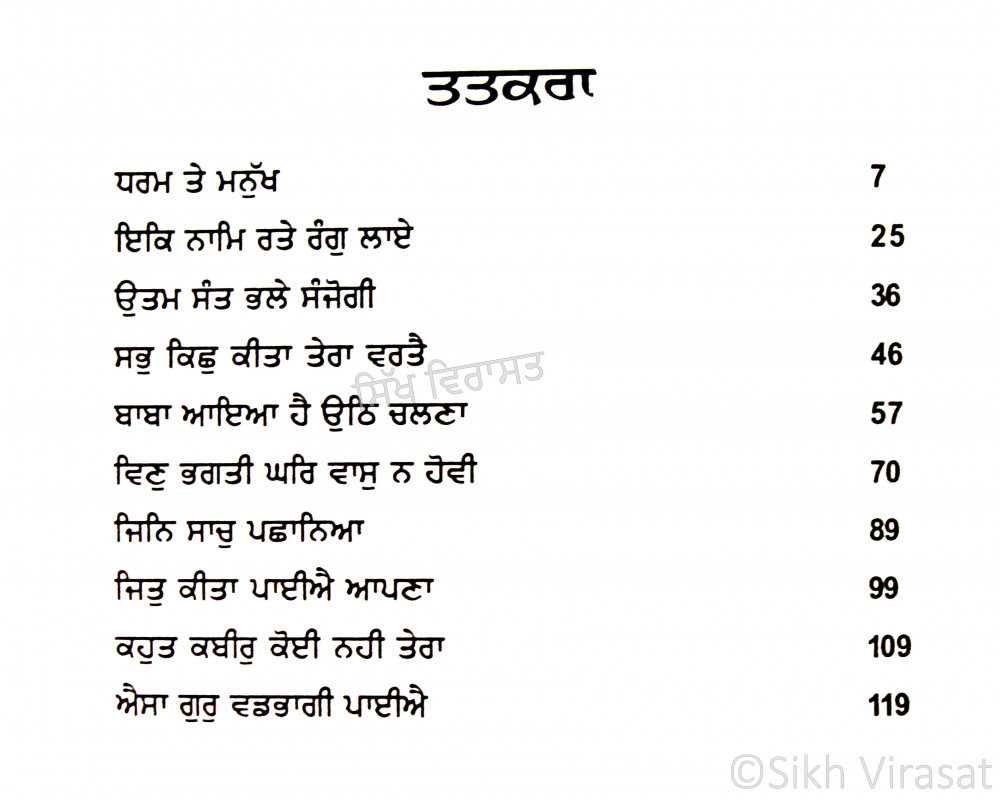 ਤਤਕਰਾ
ਧਰਮ ਤੇ ਮਨੁੱਖ 7
ਇਕਿ ਨਾਮਿ ਰਤੇ ਰੰਗੁ ਲਾਏ 25
ਉਤਮ ਸੰਤ ਭਲੇ ਸੰਜੋਗੀ 36
ਸਭੁ ਕਿਛੁ ਕੀਤਾ ਤੇਰਾ ਵਰਤੈ 46
ਸਿੱਖ ਵਿਰਾਸਤ
ਬਾਬਾ ਆਇਆ ਹੈ ਉਠਿ ਚਲਣਾ 57
ਵਿਣੁ ਭਗਤੀ ਘਰਿ ਵਾਸੁ ਨ ਹੋਵੀ 70
ਜਿਨਿ ਸਾਚੁ ਪਛਾਨਿਆ 89
ਜਿਤੁ ਕੀਤਾ ਪਾਈਐ ਆਪਣਾ 99
ਕਹੁਤ ਕਬੀਰੁ ਕੋਈ ਨਹੀ ਤੇਰਾ 109
ਐਸਾ ਗੁਰੁ ਵਡਭਾਗੀ ਪਾਈਐ 119
©Sikh Virasat